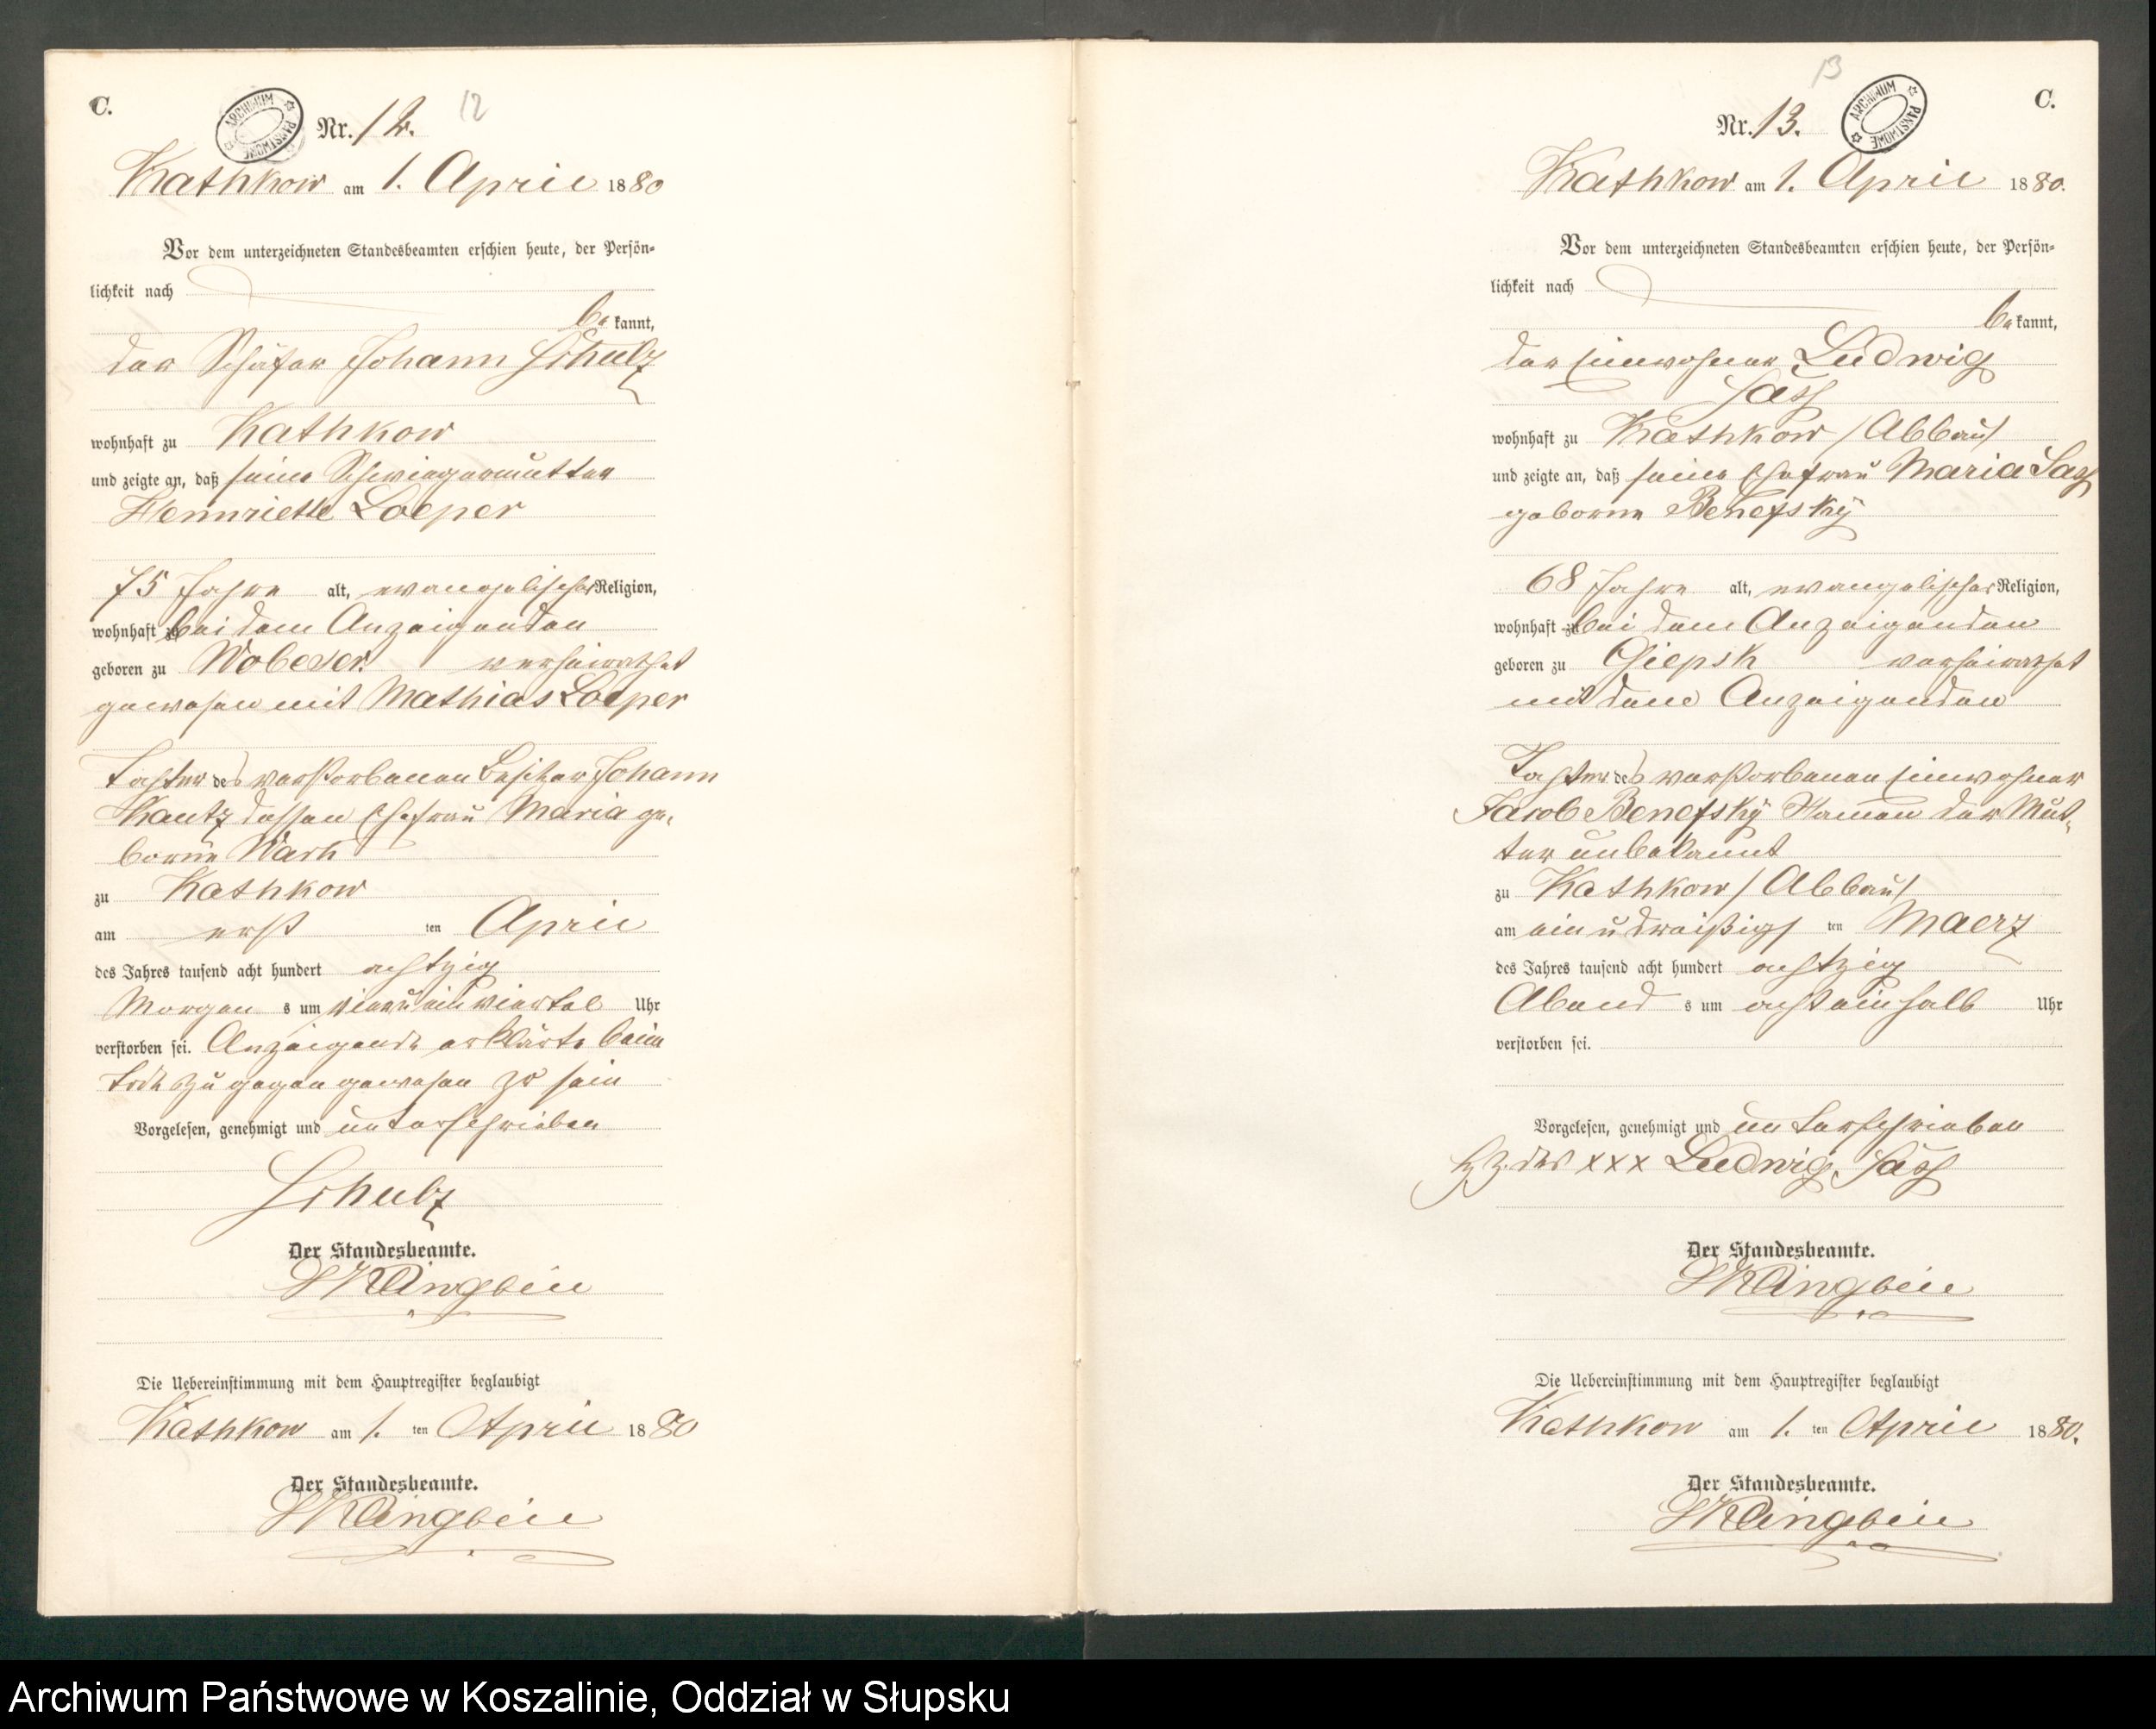 C.
ARCHIWUM PAŃSTWOWE
Nr. 12.
12
Kathkow am 1. April 1880
Vor dem unterzeichneten Standesbeamten erschien heute, der Persön-
lichkeit nach
bekannt,
der Schäfer Johann Schulz
wohnhaft zu Kathkow
und zeigte an, daß seine Schwiegermutter
Hennriette Loeper
75 Jahre alt, evangelischer Religion,
wohnhaft zu bei dem Anzeigenden
geboren zu Wobeser. verheirathet
gewesen mit Mathias Loeper
Tochter des verstorbenen Besitzer Johann
Kautz dessen Ehefrau Maria ge-
borne Wark
zu Kathkow
am erst ten April
des Jahres tausend acht hundert achtzig
Morgen s um vier u ein viertel Uhr
verstorben sei. Anzeigende erklärte beim
Tode zu gegen gewesen zo sein
Vorgelesen, genehmigt und unterschrieben
Schulz
Der Standesbeamte.
Die Uebereinstimmung mit dem Hauptregister beglaubigt
Kathkow am 1. ten April 1880
Der Standesbeamte.
13
C.
Nr. 13.
ARCHIWUM PAŃSTWOWE
Kathkow am 1. April 1880.
Vor dem unterzeichneten Standesbeamten erschien heute, der Persön-
lichkeit nach
bekannt,
der Einwohner Ludwig
Sass
wohnhaft zu Kathkow /Abbau/
und zeigte an, daß seine Ehefrau Maria Sass
geborne Benefsky
68 Jahre alt, evangelischer Religion,
wohnhaft zu bei dem Anzeigenden
geboren zu Giepsk verheirathet
mit dem Anzeigenden
Tochter des verstorbenen Einwohner
Jacob Benefsky Namen der Mut-
ter unbekannt
zu Kathkow /Abbau/
am ein u dreißigs ten Maerz
des Jahres tausend acht hundert achtzig
Abend s um acht ein halb Uhr
verstorben sei.
Vorgelesen, genehmigt und unterschrieben
Hz. des xxx Ludwig Sass
Der Standesbeamte.
Die Uebereinstimmung mit dem Hauptregister beglaubigt
Kathkow am 1. ten April 1880.
Der Standesbeamte.
Archiwum Państwowe w Koszalinie, Oddział w Słupsku